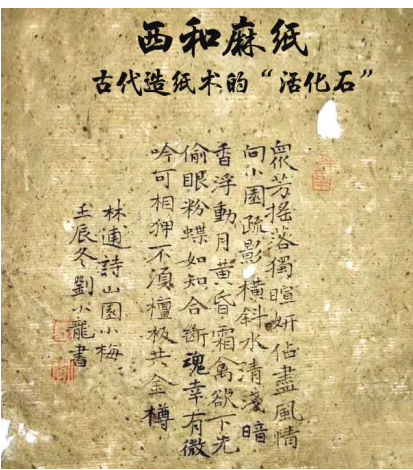 西和麻纸
古代造纸术的“活化石”
衆芳搖落獨暄妍佔盡風情
向小園疏影橫斜水清淺暗
香浮動月黃昏霜禽欲下先
偷眼粉蝶如知合斷魂幸有微
吟可相狎不須檀板共金樽
林逋詩山園小梅
壬辰冬劉小龍書